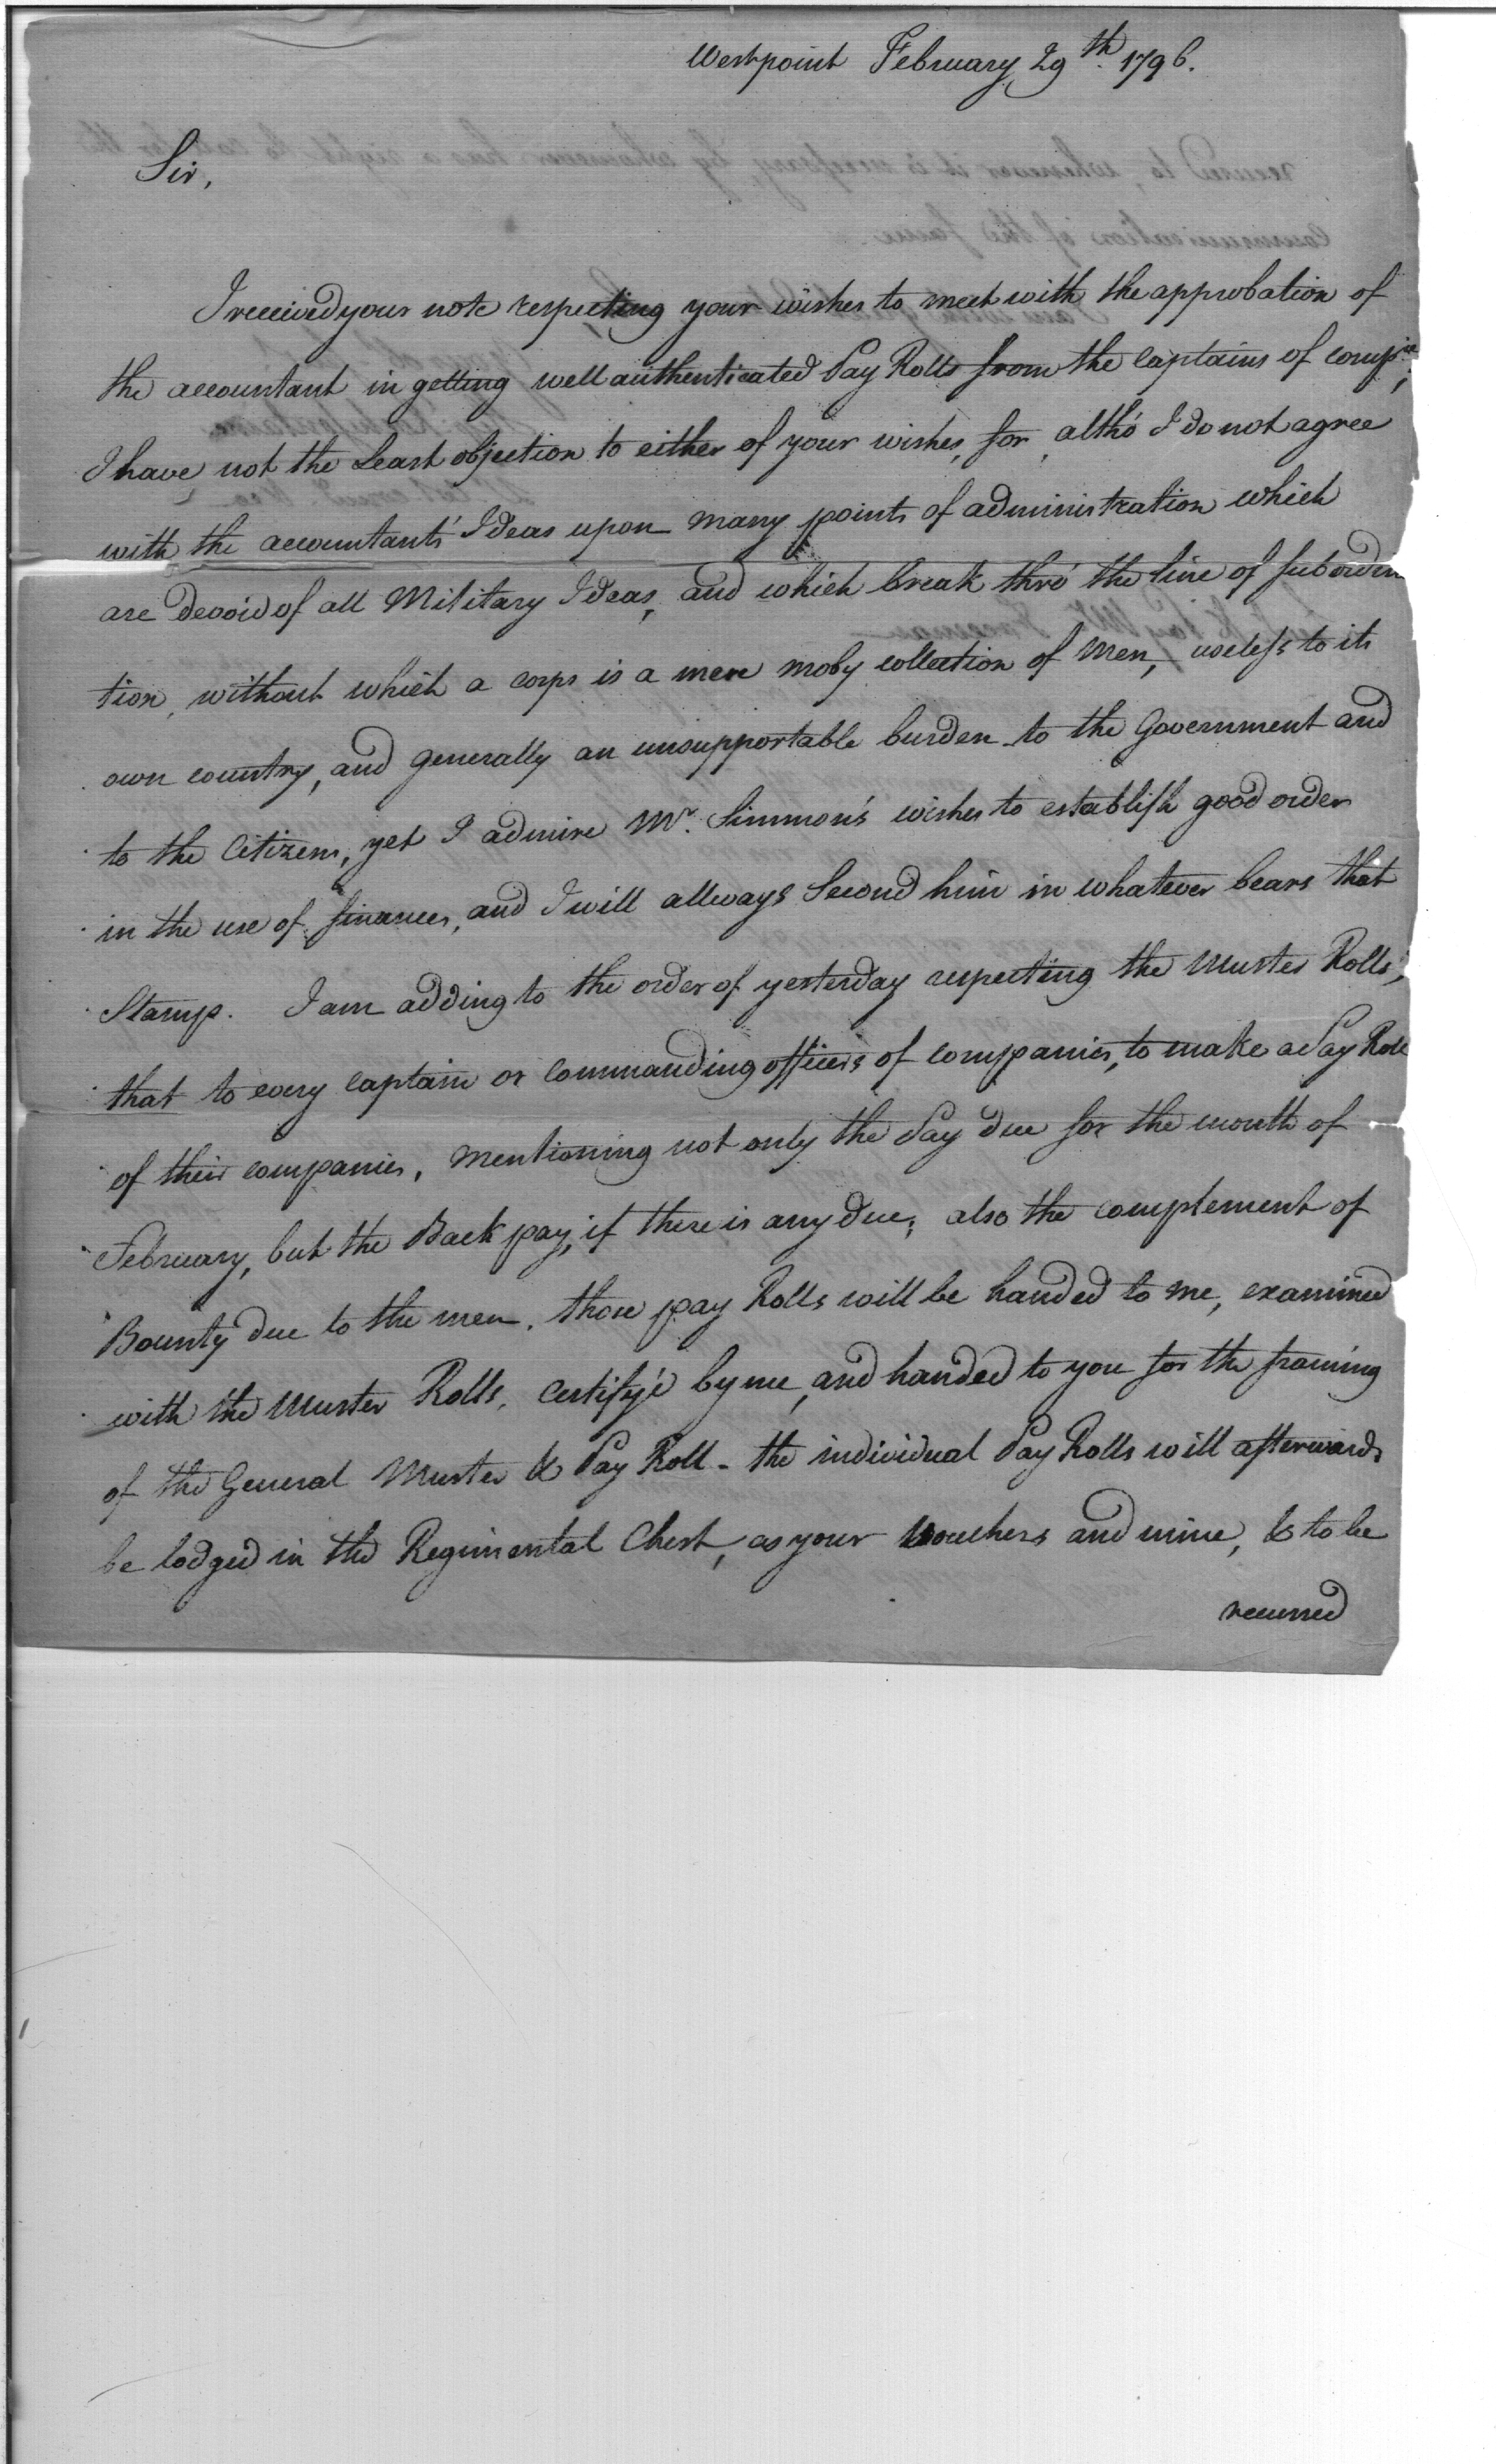 Westpoint February 29th. 1796.
Sir,
I received your note respecting your wishes to meet with the approbation of
the accountant in getting well authenticated Pay Rolls from the captains of compie.,
I have not the Least objection to either of your wishes, for, altho' I do not agree
with the accountants' Ideas upon many points of administration which
are devoid of all Military Ideas, and which break thro' the line of subordin
tion, without which a corps is a mere moby collection of Men, useless to its
own country, and generally an unsupportable burden to the Government and
to the Citizens, yet I admire Mr. Simmon's wishes to establish good order
in the use of finances, and I will allways Second him in whatever bears that
Stamp. I am adding to the order of yesterday respecting the Muster Rolls,
that to every captain or commanding officers of companies, to make a Pay Roll
of their companies, mentioning not only the Pay due for the month of
February, but the Back pay, if there is any due, also the complement of
Bounty due to the men. those pay Rolls will be handed to me, examined
with the Muster Rolls, certify'd by me, and handed to you for the framing
of the General Muster & Pay Roll - the individual Pay Rolls will afterwards
be lodged in the Regimental Chest, as your Vouchers and mine, & to be
recurred